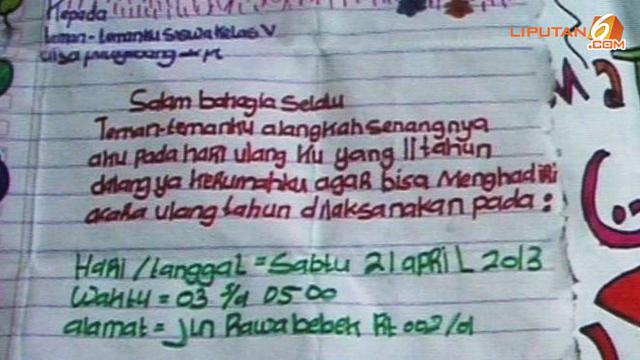 Kepada
LIPUTAN 6
.COM
teman-temanku Siswa Kelas V
Salam bahagia Selalu
Teman-temanku alangkah senangnya
aku pada hari ulang ku yang 11 tahun
datang ya kerumahku agar bisa Menghadiri
acara ulang tahun dilaksanakan pada :
Hari/tanggal = Sabtu 21 april 2013
Waktu = 03 s/d 05 00
alamat = jln Rawabebek Rt 002/01